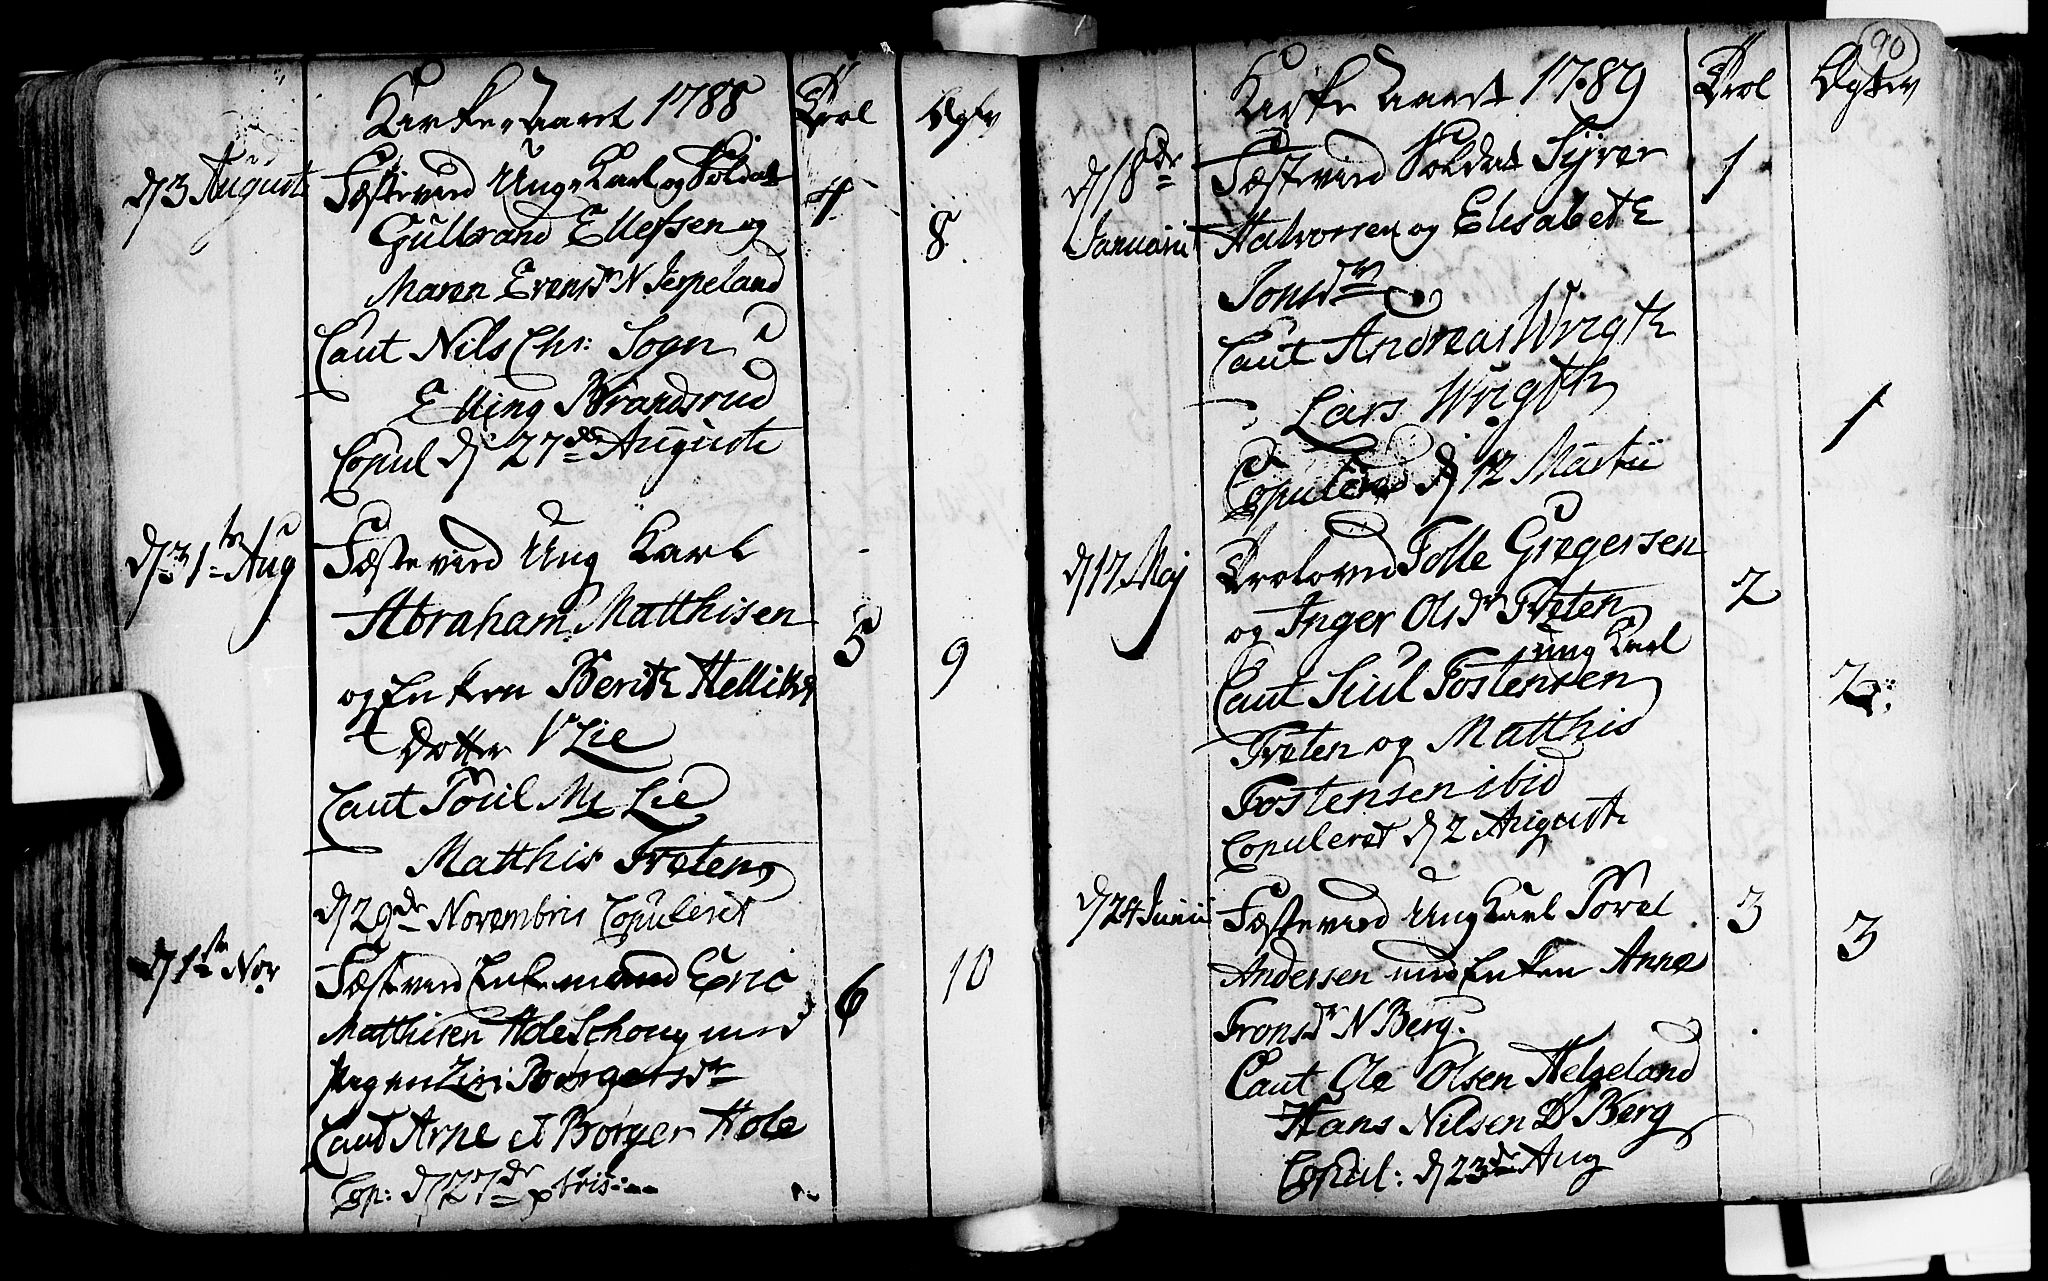 Kirke Aaret 1788
Trol
Egtev
d 3 August
Fæstered Unge Karl og Soldat
4
Gulbrand Ellefsen og
8
Maren Evensdr N Jerpeland
Caut Nils Chr: Sogn
Elling Brandsrud
Copul d 27de Auguste
d 31te Aug
Fæstered Ung Karl
Abraham Matthisen
5
9
og Enken Berithe Helliks
Dotter V Lie
Caut Poul M Lie
Matthis Træten
d 29de Novembris Copuleret
d 1te Nov
Fæstered Enkemand Eric
6
10
Matthisen Hole Schoug med
Pigen Ziri Børgersdr
Caut Arne et Børger Hole
Cop: d 27de xbris
90
Kirke Aaret 1789
Trol
Egtev
d 18de
Januarii
Fæstered Soldat Syver
1
Halvorsen og Elisabethe
Jonsdr
Caut Andreas Wrigth
Lars Wrigth
1
Copulered d 12 Martii
d 17 Maj
Troloved Tolle Gregersen
2
og Inger Olsdr Træten
ung Karl
Caut Juul Tostensen
2
Træten og Matthis
Tostensen ibid
Copuleret d 2 Auguste
d 24 Junii
Fæstered Ung Karl Povel
3
3
Andersen med Enken Anne
Tronsdr N Berg.
Caut Ole Olsen Helgeland
Hans Nilsen Ø Berg
Copul: d 23de Aug